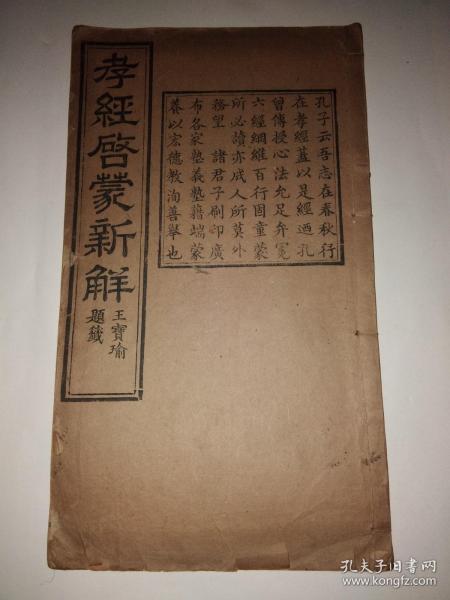 孝經啓蒙新解
王寶瑜
題籤
孔子云吾志在春秋行
在孝經蓋以是經迺孔
曾傳授心法允足弁冕
六經綱維百行固童蒙
所必讀亦成人所莫外
務望 諸君子刷印廣
布各家塾義塾藉端蒙
養以宏德教洵善舉也
孔夫子旧书网
www.kongfz.com